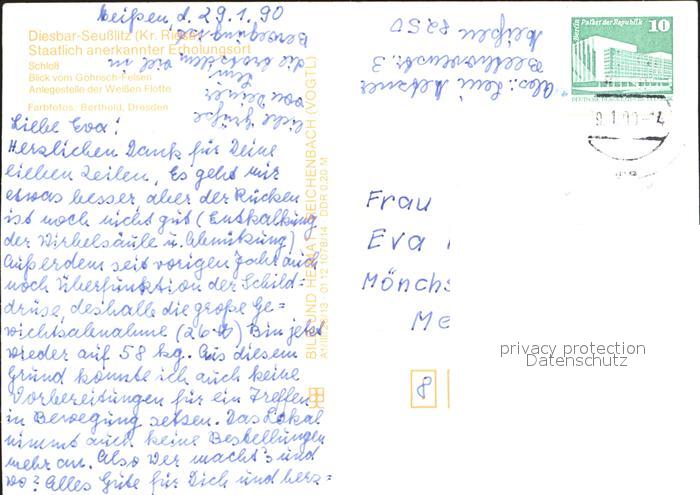 Meißen, d. 29.1.90
Diesbar-Seußlitz (Kr. Riesa)
Staatlich anerkannter Erholungsort
Schloß
Blick vom Göhrisch-Felsen
Anlegestelle der Weißen Flotte
Farbfotos: Berthold, Dresden
Liebe Eva!
Herzlichen Dank für Deine
lieben Zeilen. Es geht mir
etwas besser, aber der Rücken
ist noch nicht gut (Entkalkung
der Wirbelsäule u. Abnützung)
Außerdem seit vorigen Jahr auch
noch Überfunktion der Schild=
drüse, deshalb die große Ge=
wichtsabnahme (26 ℔) Bin jetzt
wieder auf 58 kg. Aus diesem
Grund konnte ich auch keine
Vorbereitungen für ein Treffen
in Bewegung setzen. Das Lokal
nimmt auch keine Bestellungen
mehr an. Also wer macht's und
wo? Alles Gute für Dich und herz=
liche Grüße
von Deiner
die trotzdem viel in
Bewegung ist
BILD UND HEIMAT REICHENBACH (VOGTL)
01 12 1078/14 DDR 0,20 M
Abs:
Beethovenstr. 3
Meißen 8250
Berlin Palast der Republik
10
DEUTSCHE DEMOKRATISCHE REPUBLIK
Frau
Eva
Mönchs
Me
8
privacy protection
Datenschutz